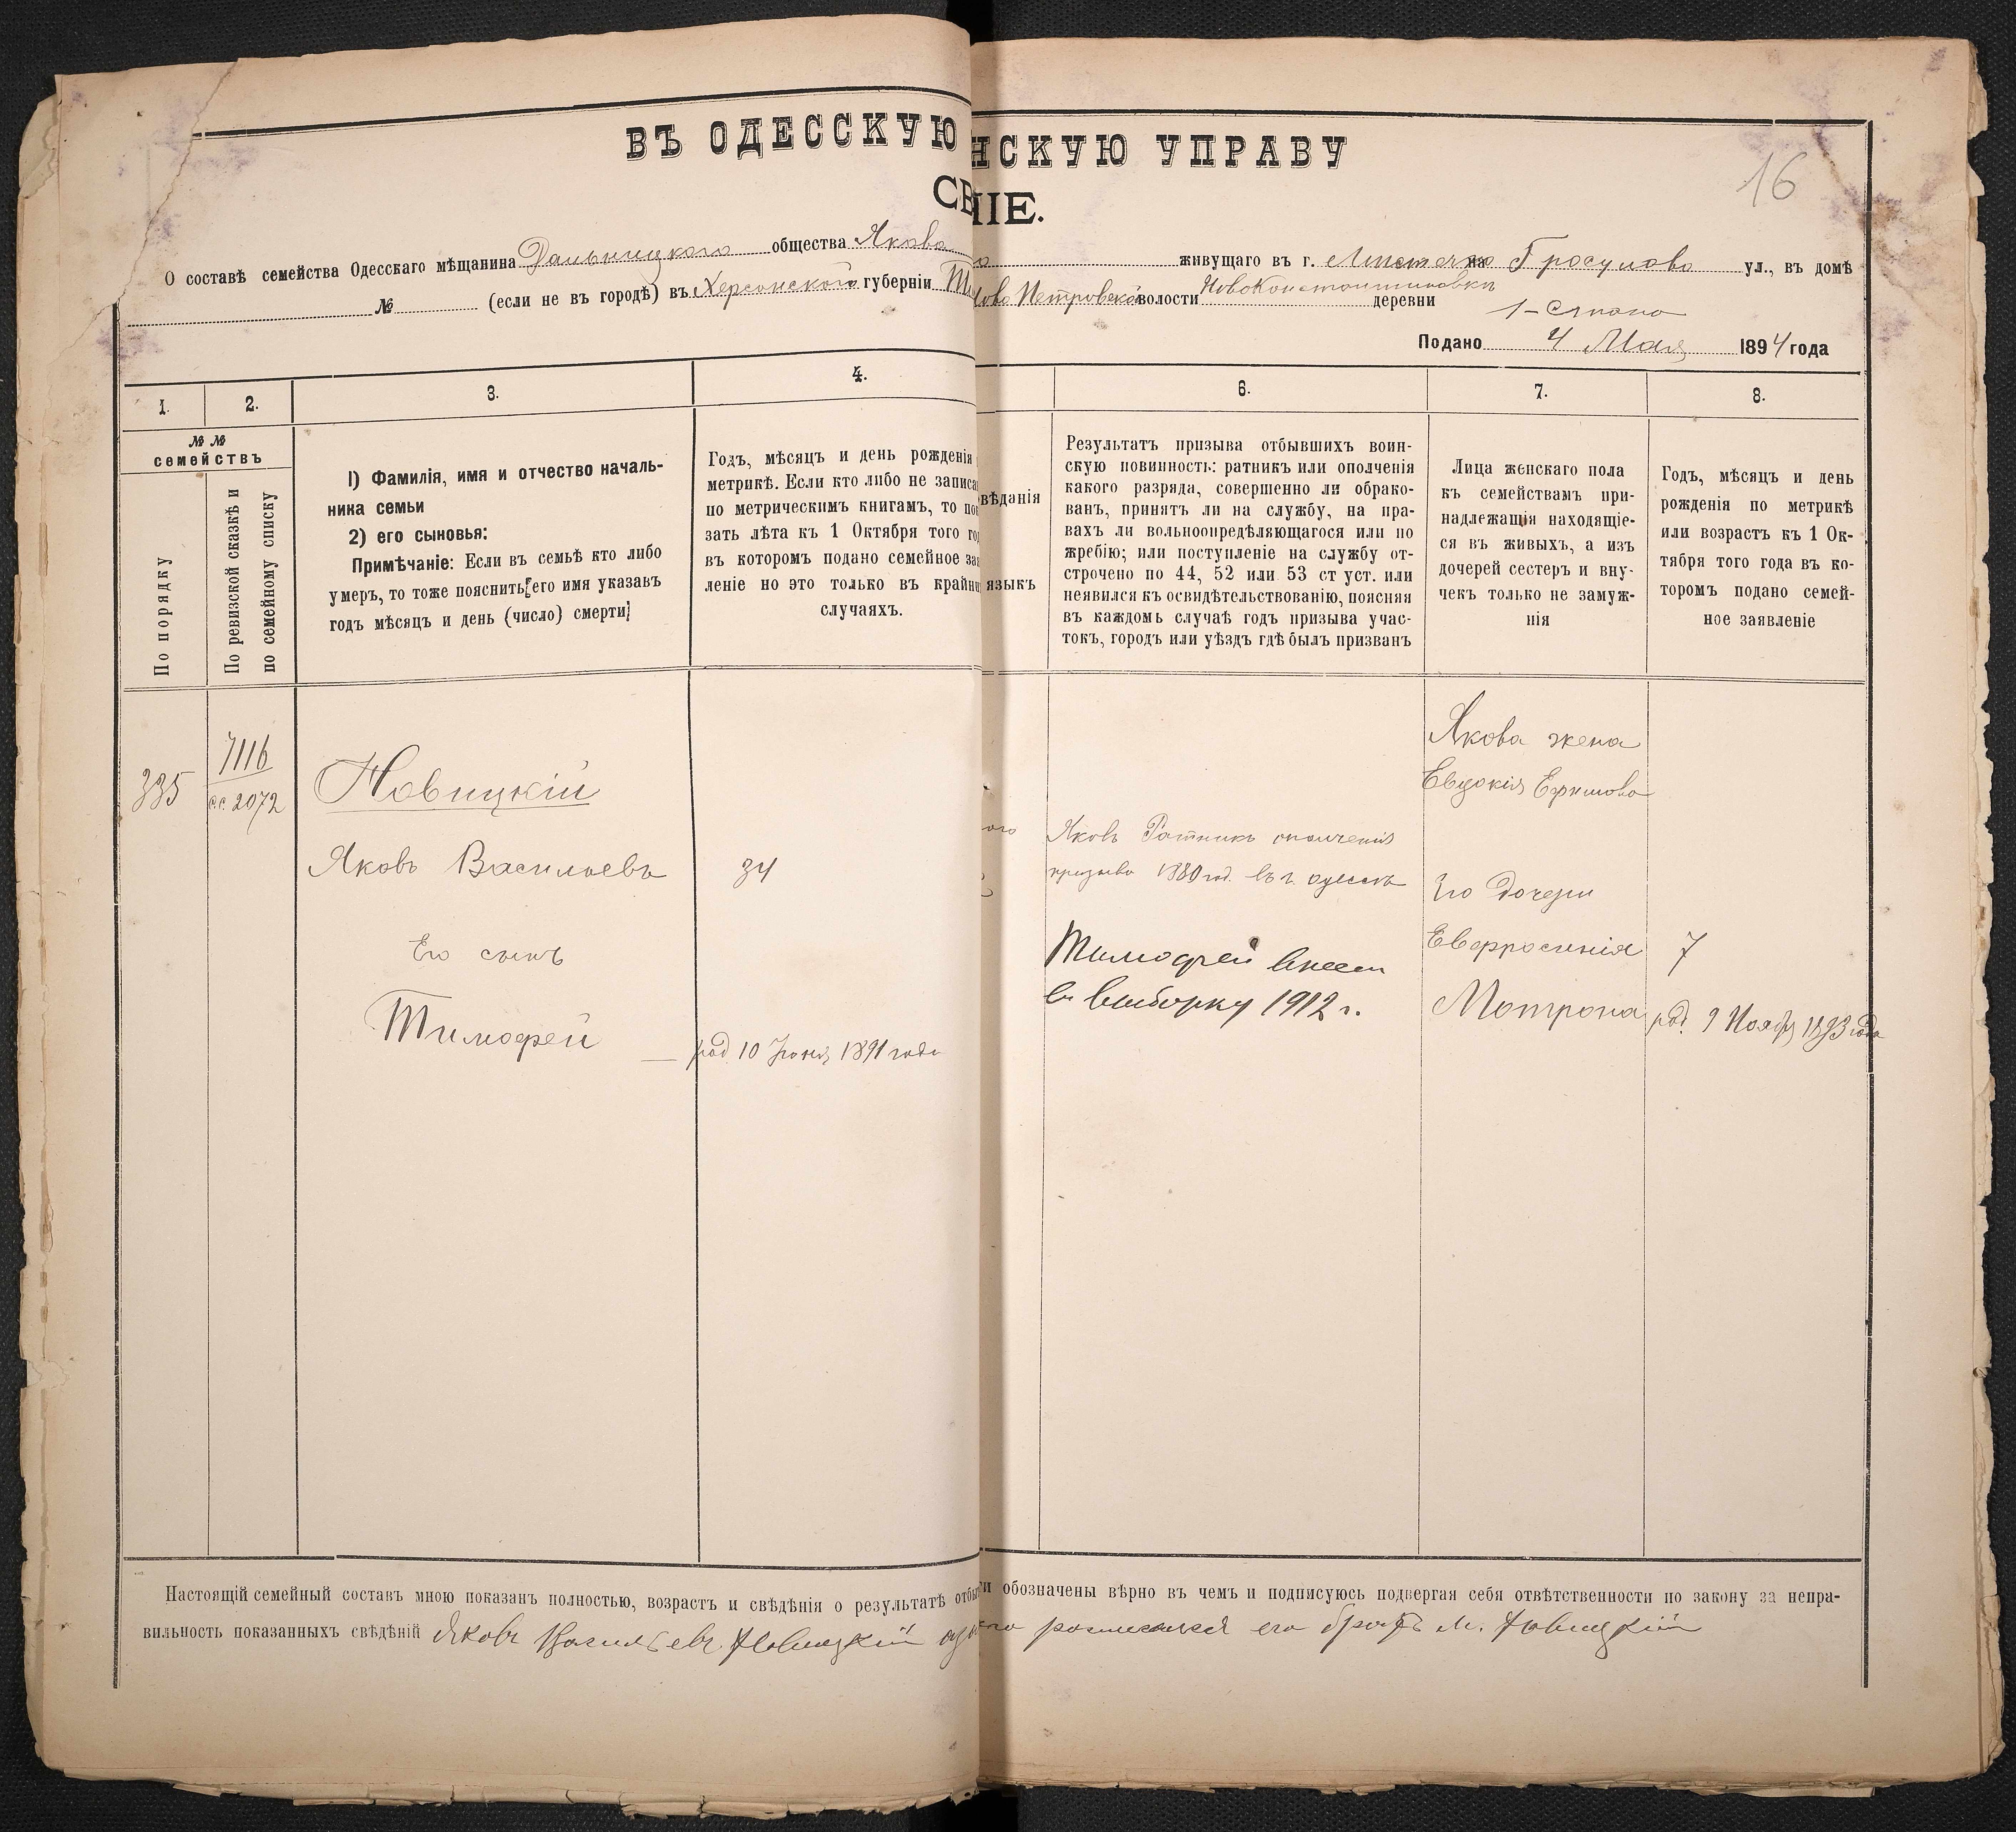 ВЪ ОДЕССКУЮ НСКУЮ УПРАВУ
16
СВ НІЕ.
О составѣ семейства Одесскаго мѣщанина Дальницкого общества Якова живущаго въ г. Мистечко на Гросулово ул., въ домѣ
№ (если не въ городѣ) въ Херсонской губерніи Ти Ново Петровской волости НовоКонстантиновки деревни
1-Стана
Подано 4 Мая 1894 года
1. 2. 3. 4. 6. 7. 8.
№ №
семействъ
По порядку
По ревизской сказкѣ и
по семейному списку
1) Фамилія, имя и отчество началь-
ника семьи
2) его сыновья:
Примѣчаніе: Если въ семьѣ кто либо
умеръ, то тоже пояснить его имя указавъ
годъ мѣсяцъ и день (число) смерти
Годъ, мѣсяцъ и день рожденія
метрикѣ. Если кто либо не записа
по метрическимъ книгамъ, то пок
зать лѣта къ 1 Октября того го
въ котором подано семейное зая
леніе но это только въ крайни
случаяхъ.
вѣданія
языкъ
Результатъ призыва отбывшихъ воин-
скую повинность: ратникъ или ополченія
какого разряда, совершенно ли обрако-
ванъ, принятъ ли на службу, на пра-
вахъ ли вольноопредѣляющагося или по
жребію; или поступленіе на службу от-
строчено по 44, 52 или 53 ст уст. или
неявился къ освидѣтельствованію, поясняя
въ каждомъ случаѣ годъ призыва учас-
токъ, городъ или уѣздъ гдѣ былъ призванъ
Лица женскаго пола
къ семействамъ при-
надлежащія находящіе-
ся въ живыхъ, а изъ
дочерей сестеръ и вну-
чекъ только не замуж-
нія
Годъ, мѣсяцъ и день
рожденія по метрикѣ
или возрастъ къ 1 Ок-
тября того года въ ко-
торомъ подано семей-
ное заявленіе
335
7116
сс. 2072
Новицкій
Яковъ Васильевъ
34
Его сынъ
Тимофей
— род 10 Іюня 1891 года
ого
Яковъ Ратникъ ополченія
призыва 1880 год. въ г. Одессѣ
Тимофей внесен
в выборку 1912 г.
Якова жена
Евдокія Ефимова
Его дочери
Евфросинія
7
Мотрона
род. 9 Ноября 1893 года
Настоящій семейный составъ мною показанъ полностью, возрастъ и свѣдѣнія о результатѣ отбы ти обозначены вѣрно въ чемъ и подписуюсь подвергая себя отвѣтственности по закону за непра-
вильность показанныхъ свѣдѣній Яковъ Васильевъ Новицкій росписался его братъ М. Новицкій